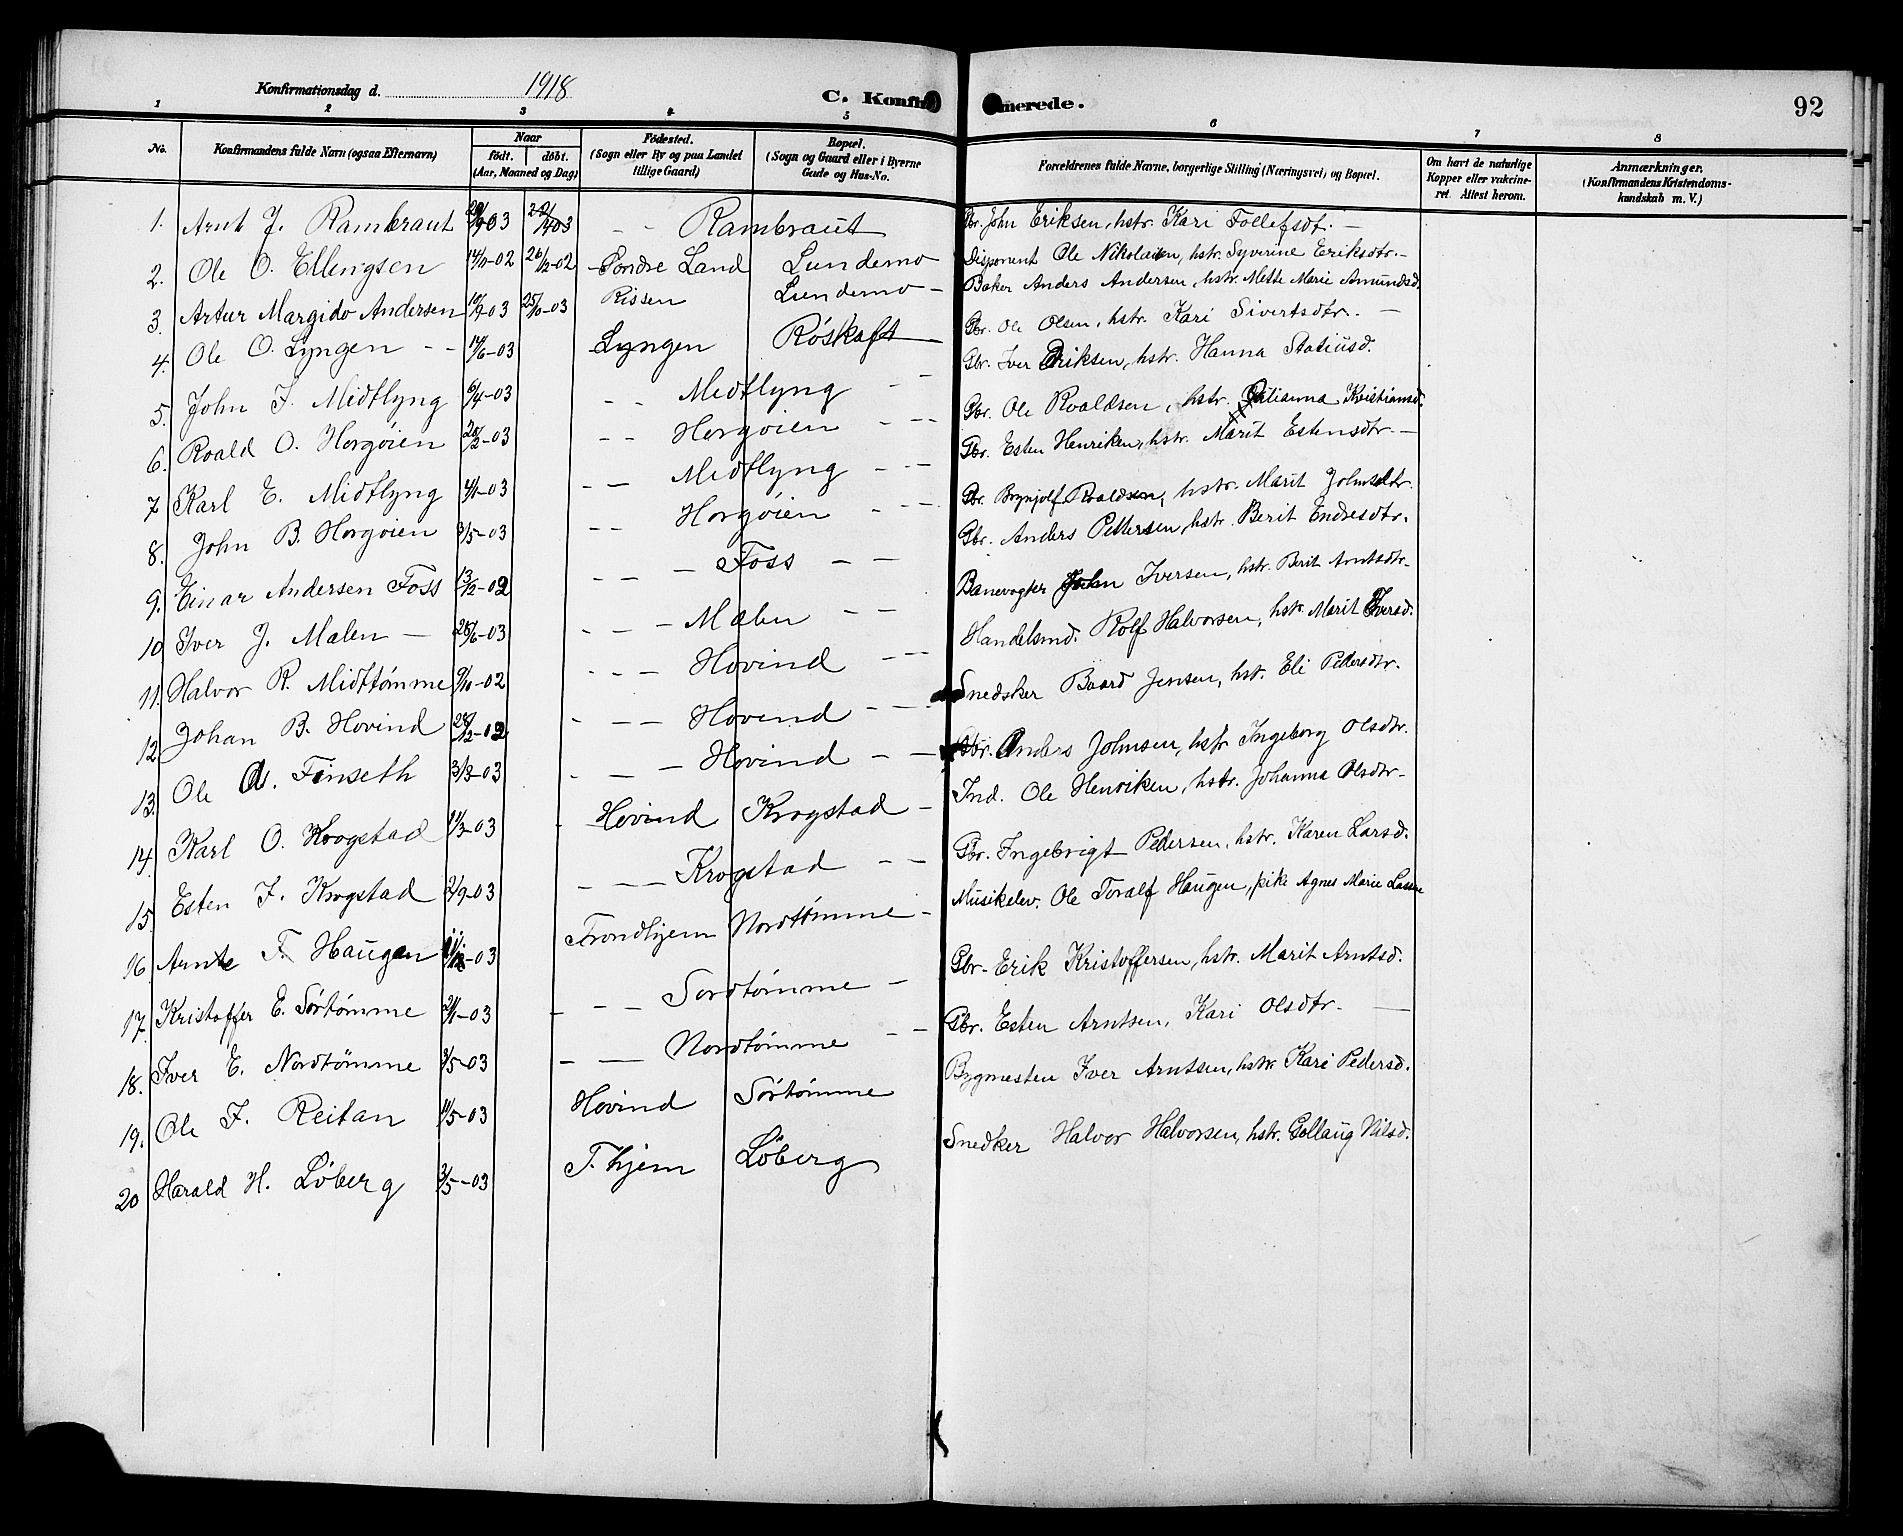 Konfirmationsdag d. 1918
C. Konfirmerede.
92
1 2 3 4 5 6 7 8
No. Konfirmandens fulde Navn (ogsaa Efternavn) Naar født. døbt. (Aar, Maaned og Dag) Fødested. (Sogn eller By og paa Landet tillige Gaard) Bopæl. (Sogn og Gaard eller i Byerne Gade og Hus-No. Forældrenes fulde Navne, borgerlige Stilling (Næringsvei) og Bopæl. Om havt de naturlige Kopper eller vakcineret. Attest herom. Anmærkninger. (Konfirmandens Kristendomskundskab m. V.)
1. Arnt J. Rambraut - - Rambraut Gbr. John Eriksen, hstr. Kari Tollefsdt. -
2. Ole O. Ellengsen 14/11-02 26/12-02 Søndre Land Lundemo Disponent Ole Nikolaisen, hstr. Syverine Eriksdtr. -
3. Artur Margido Andersen 25/10-03 Rissen Lundemo - Baker Anders Andersen, hstr. Mette Marie Amundsd.
4. Ole O. Lyngen - - 14/6-03 Lyngen Røskaft Gbr. Ole Olsen, hstr. Kari Sivertsdtr. -
5. John I. Midtlyng 6/4-03 - - Midtlyng - - Gbr. Iver Eriksen, hstr. Hanna Statiusd.
6. Roald O. Horgøien 20/2-03 - - Horgøien - - - Gbr. Ole Roaldsen, hstr. Kristiansd.
7 Karl E. Midtlyng 4/1-03 - - Midtlyng - - - Gbr. Esten Henriken, hstr. Marit Estensdtr. -
8. John B. Horgøien 3/5-03 - - Horgøien - - - Gbr. Brynjolf Roaldsen, hstr. Marit Johnsdtr.
9. Einar Andersen Foss 13/12-02 - - - Foss - - Gbr. Anders Pettersen, hstr. Berit Endresdtr.
10 Iver J. Mælen - 28/6-03 - - - Mælen - - Banevogter John Iversen, hstr. Berit Arntsdtr.
11. Halvor R. Midttømme 9/10-02 - - - Hovind - - Handelsmd. Rolf Halvorsen, hstr. Marit Iversd.
12 Johan B. Hovind 28/12-02 - - - Hovind - - - Snedsker Baard Jensen, hst. Eli Pedersdtr.
13. Ole A. Finseth 3/3-03 - - - Hovind - - Gbr. Anders Johnsen, hstr Ingeborg Olsdtr.
14. Karl O. Krogstad 11/3-03 - Hovind Krogstad - Ind. Ole Henriken, hstr. Johanna Olsdtr -
15. Esten I. Krogstad 2/9-03 - - - Krogstad - - Gbr. Ingebrigt Pedersen, hstr. Karen Larsd.
16. Arnte T. Haugen Trondhjem Nordtømme - Musikelev. Ole Toralf Haugen, pike Agnes Marie
17. Kristoffer E. Sørtømme 21/1-03 - - - Sørdtømme - Gbr- Erik Kristoffersen, hstr. Marit Arntsd.
18. Iver E. Nordtömme 3/5-03 - - - Nordtømme - - Gbr. Esten Arntsen, Kari Olsdtr. -
19. Ole I. Reitan 11/5-03 Hovind Sørtømme Bygmesten Iver Arntsen, hstr Kari Pedersd.
20 Harald H. Løberg 3/5-03 T.hjem Løberg Snedker Halvor Halvorsen, hstr. Gollaug Nilsd.